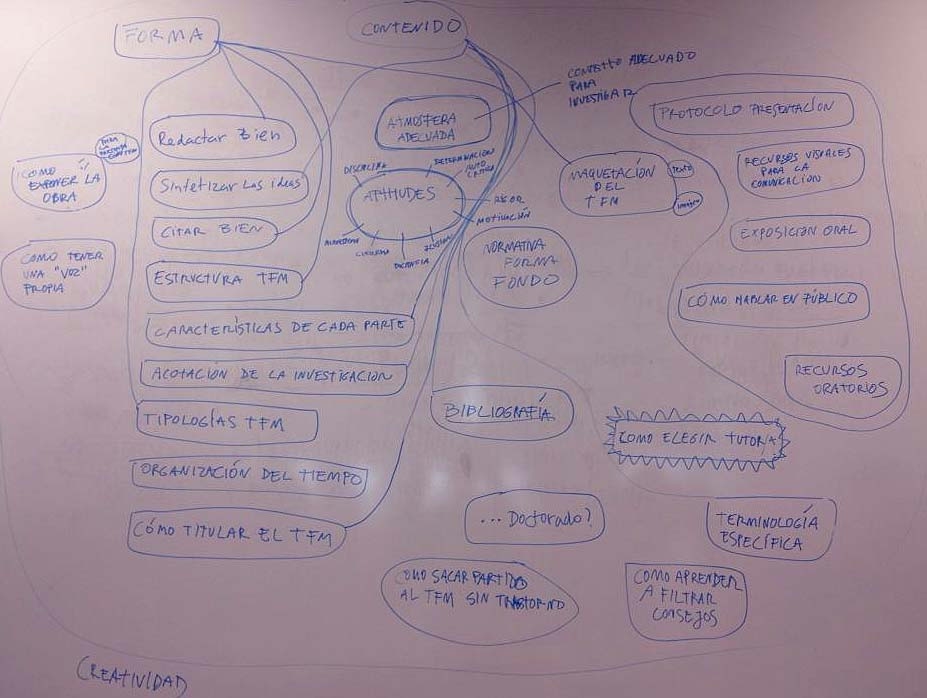 FORMA
CONTENIDO
CONTEXTO ADECUADO
PARA
INVESTIGAR
ATMOSFERA
ADECUADA
PROTOCOLO PRESENTACIÓN
Redactar Bien
¿COMO
EXPONER LA
OBRA
DISCIPLINA
DETERMINACIÓN
AUTO
CRÍTICA
APTITUDES
RIGOR
MOTIVACIÓN
MAQUETACIÓN
DEL
TFM
TEXTO
IMAGEN
RECURSOS VISUALES
PARA LA
COMUNICACIÓN
Sintetizar Las ideas
CITAR BIEN
EXPOSICIÓN ORAL
COMO TENER
UNA "VOZ"
PROPIA
NORMATIVA
FORMA
FONDO
ESTRUCTURA TFM
CÓMO HABLAR EN PÚBLICO
CARACTERÍSTICAS DE CADA PARTE
ACOTACIÓN DE LA INVESTIGACION
RECURSOS
ORATORIOS
TIPOLOGÍAS TFM
BIBLIOGRAFÍA
COMO ELEGIR TUTOR/A
ORGANIZACIÓN DEL TIEMPO
... Doctorado?
TERMINOLOGÍA
ESPECÍFICA
CÓMO TITULAR EL TFM
COMO SACAR PARTIDO
AL TFM SIN TRASTORNO
COMO APRENDER
A FILTRAR
CONSEJOS
CREATIVIDAD